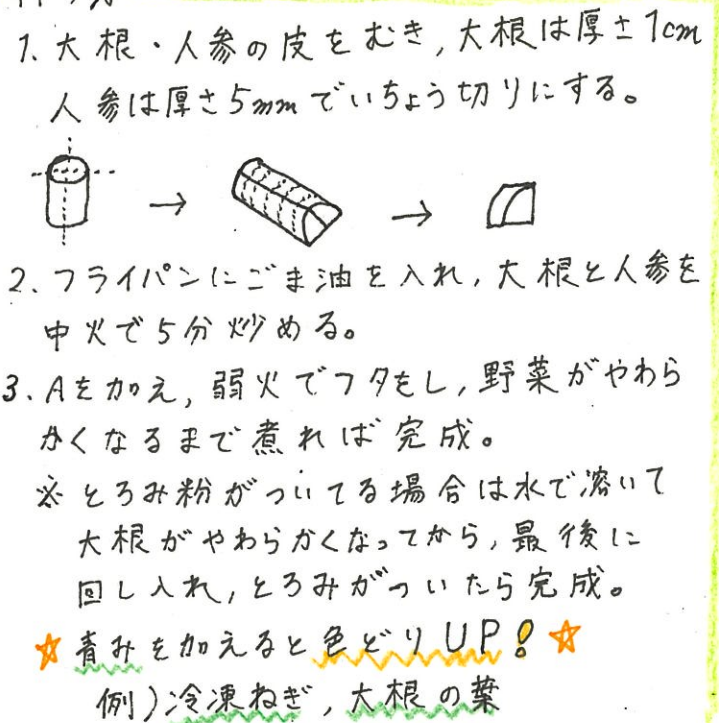 1. 大根・人参の皮をむき, 大根は厚さ1cm
人参は厚さ5mmでいちょう切りにする。
2. フライパンにごま油を入れ, 大根と人参を
中火で5分炒める。
3. Aを加え, 弱火でフタをし, 野菜がやわら
かくなるまで煮れば完成。
※とろみ粉がついてる場合は水で溶いて
大根がやわらかくなってから, 最後に
回し入れ, とろみがついたら完成。
☆青みを加えると色どりUP!☆
例)冷凍ねぎ, 大根の葉